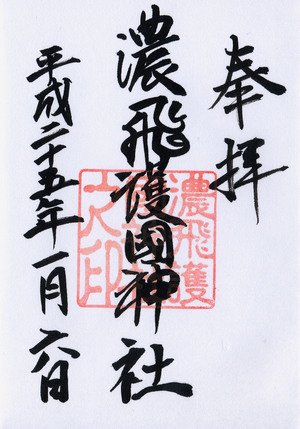 奉拝
濃飛護國神社
平成二十五年一月六日
濃飛護
國神社
之印